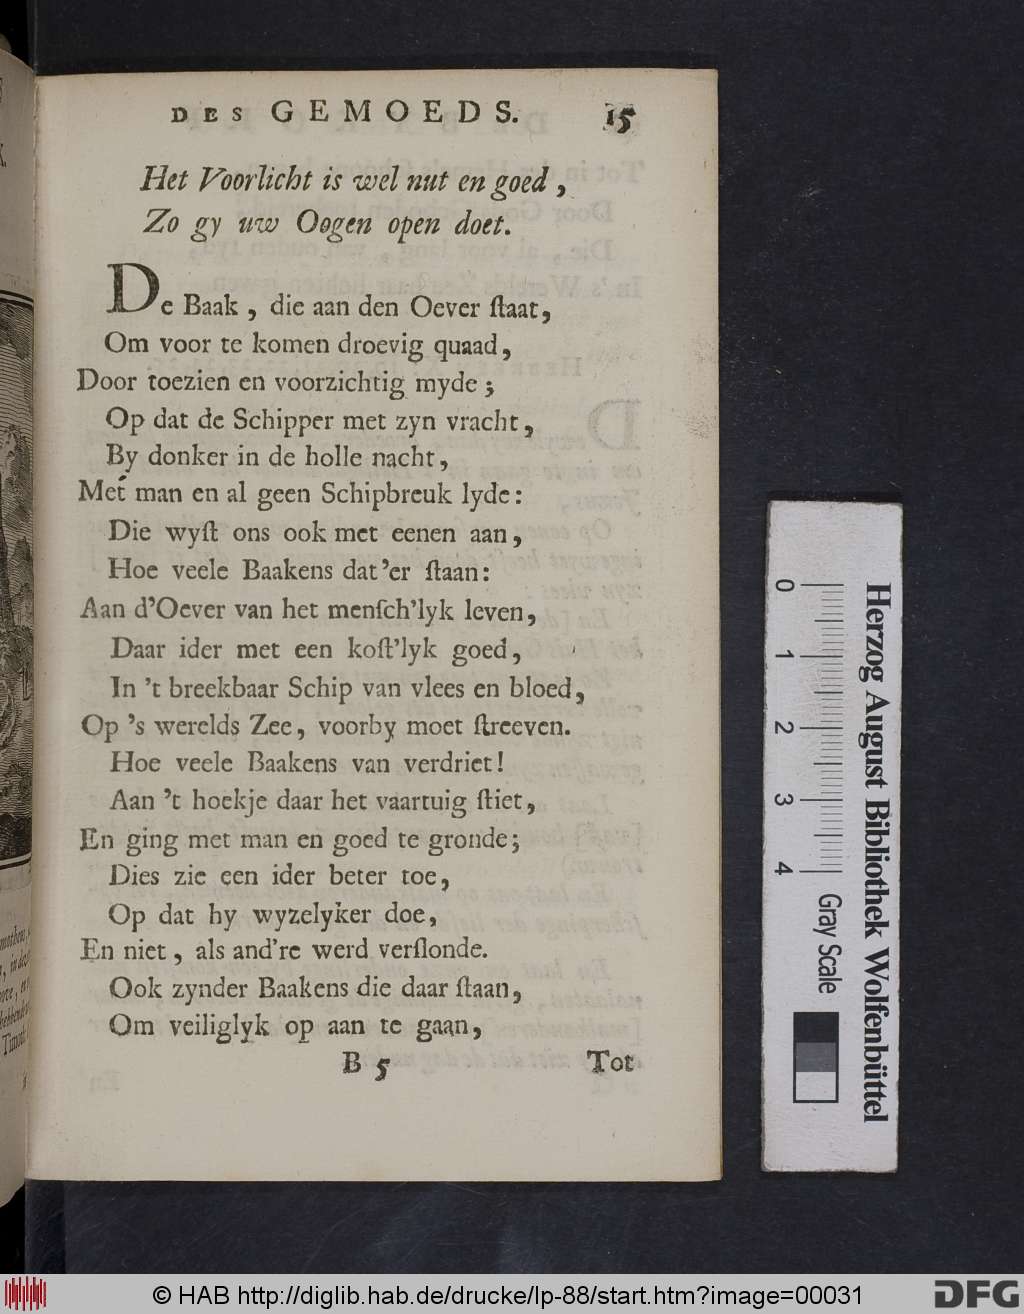 DES GEMOEDS. 15
Het Voorlicht is wel nut en goed,
Zo gy uw Oogen open doet.
De Baak, die aan den Oever ſtaat,
Om voor te komen droevig quaad,
Door toezien en voorzichtig myde;
Op dat de Schipper met zyn vracht,
By donker in de holle nacht,
Met man en al geen Schipbreuk lyde:
Die wyſt ons ook met eenen aan,
Hoe veele Baakens dat'er ſtaan:
Aan d'Oever van het menſch'lyk leven,
Daar ider met een koſt'lyk goed,
In 't breekbaar Schip van vlees en bloed,
Op 's werelds Zee, voorby moet ſtreeven.
Hoe veele Baakens van verdriet!
Aan 't hoekje daar het vaartuig ſtiet,
En ging met man en goed te gronde;
Dies zie een ider beter toe,
Op dat hy wyzelyker doe,
En niet, als and're werd verſlonde.
Ook zynder Baakens die daar ſtaan,
Om veiliglyk op aan te gaan,
B 5 Tot
0 1 2 3 4
Gray Scale
Herzog August Bibliothek Wolfenbüttel
© HAB http://diglib.hab.de/drucke/lp-88/start.htm?image=00031
DFG